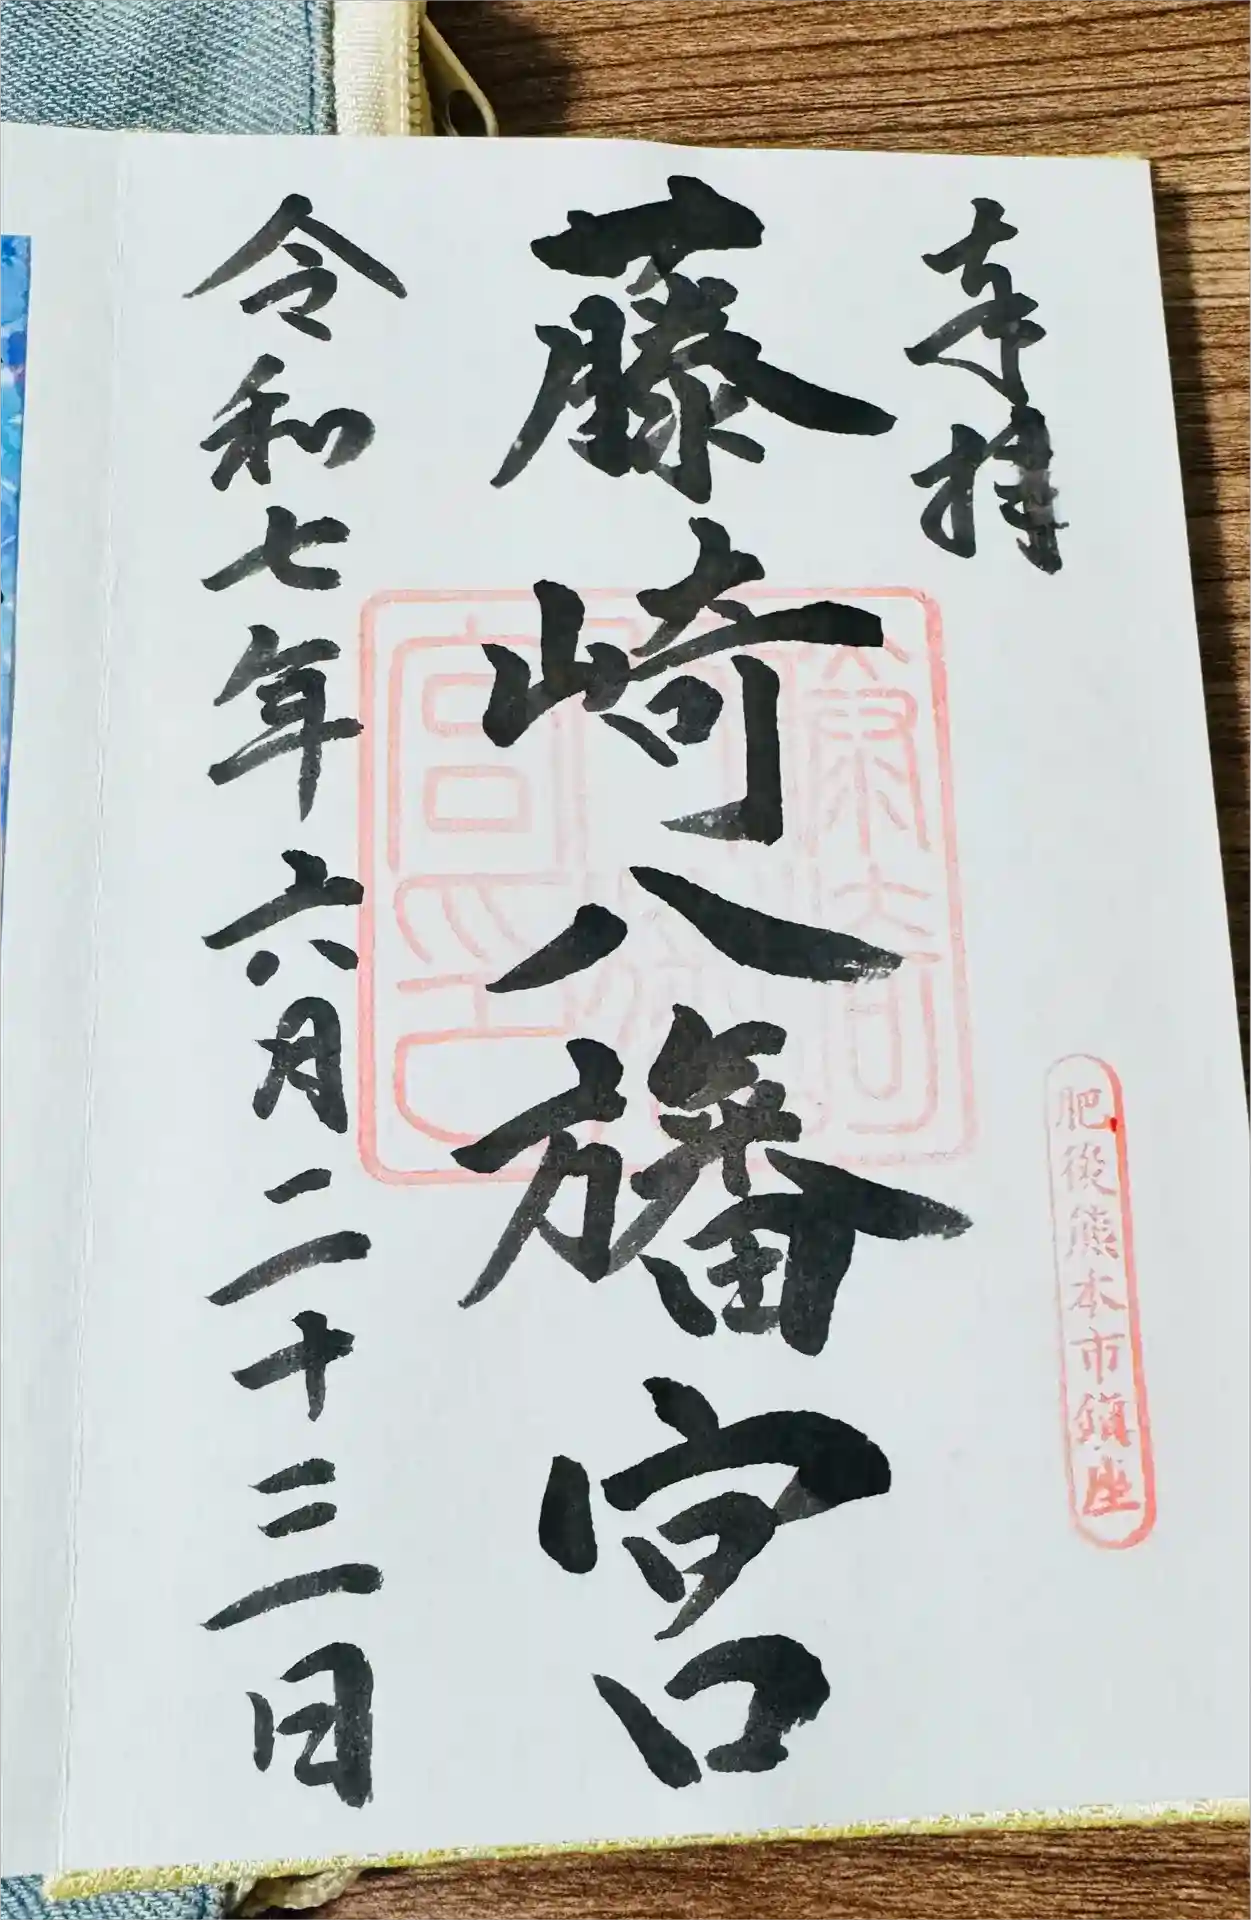 奉拝
肥後熊本市鎮座
藤崎八旛宮
令和七年六月二十三日